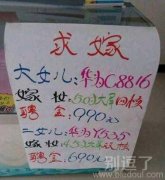 求嫁
大女儿：华为C8816
嫁妆：5.0大屏四核
聘金：990元
二女儿：华为Y535
嫁妆：4.5大屏双核
聘金：690元
别逗了
www.biedoul.com